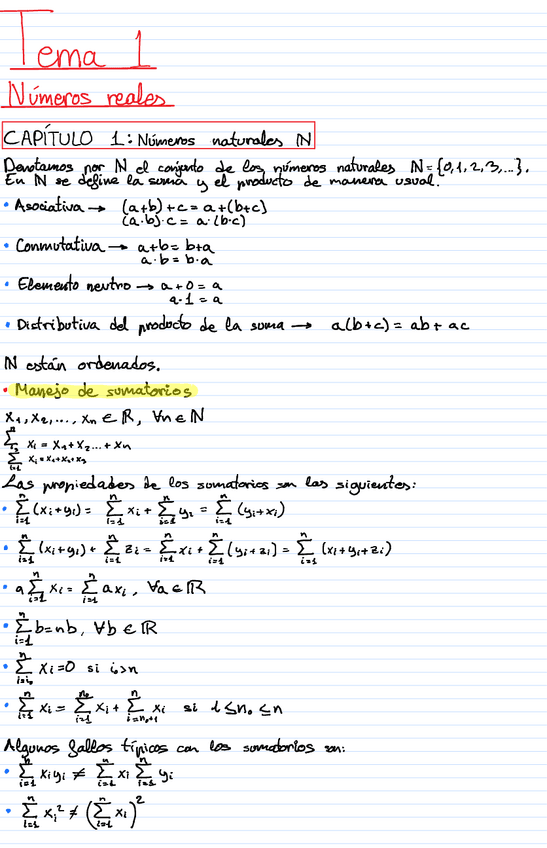 Tema 1
Números reales
CAPÍTULO 1: Números naturales ℕ
Denotamos por ℕ el conjunto de los números naturales ℕ={0,1,2,3,...}.
En ℕ se define la suma y el producto de manera usual.
• Asociativa → (a+b)+c = a+(b+c)
(a·b)·c = a·(b·c)
• Conmutativa → a+b = b+a
a·b = b·a
• Elemento neutro → a+0 = a
a·1 = a
• Distributiva del producto de la suma → a(b+c) = ab + ac
ℕ están ordenados.
• Manejo de sumatorios
x₁, x₂, ..., xₙ ∈ ℝ, ∀n ∈ ℕ
∑ xᵢ = x₁+x₂...+xₙ
∑ᵢ₌₁ xᵢ = x₁+x₂+x₃
Las propiedades de los sumatorios son las siguientes:
• ∑ᵢ₌₁ⁿ (xᵢ+yᵢ) = ∑ᵢ₌₁ⁿ xᵢ + ∑ᵢ₌₁ⁿ yᵢ = ∑ᵢ₌₁ⁿ (yᵢ+xᵢ)
• ∑ᵢ₌₁ⁿ (xᵢ+yᵢ) + ∑ᵢ₌₁ⁿ zᵢ = ∑ᵢ₌₁ⁿ xᵢ + ∑ᵢ₌₁ⁿ (yᵢ+zᵢ) = ∑ᵢ₌₁ⁿ (xᵢ+yᵢ+zᵢ)
• a ∑ᵢ₌₁ⁿ xᵢ = ∑ᵢ₌₁ⁿ axᵢ, ∀a ∈ ℝ
• ∑ᵢ₌₁ⁿ b = nb, ∀b ∈ ℝ
• ∑ᵢ₌ᵢ₀ⁿ xᵢ = 0 si i₀>n
• ∑ᵢ₌₁ⁿ xᵢ = ∑ᵢ₌₁ⁿ⁰ xᵢ + ∑ᵢ₌ₙ₀₊₁ⁿ xᵢ si 1 ≤ n₀ ≤ n
Algunos fallos típicos con los sumatorios son:
• ∑ᵢ₌₁ⁿ xᵢyᵢ ≠ ∑ᵢ₌₁ⁿ xᵢ ∑ᵢ₌₁ⁿ yᵢ
• ∑ᵢ₌₁ⁿ xᵢ² ≠ (∑ᵢ₌₁ⁿ xᵢ)²